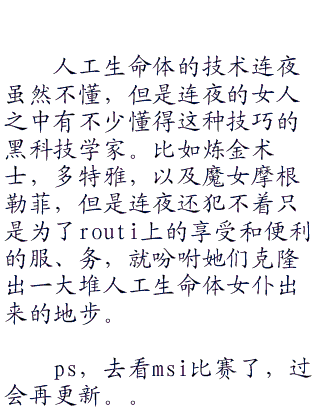 人工生命体的技术连夜
虽然不懂，但是连夜的女人
之中有不少懂得这种技巧的
黑科技学家。比如炼金术
士，多特雅，以及魔女摩根
勒菲，但是连夜还犯不着只
是为了routi上的享受和便利
的服、务，就吩咐她们克隆
出一大堆人工生命体女仆出
来的地步。
ps，去看msi比赛了，过
会再更新。。